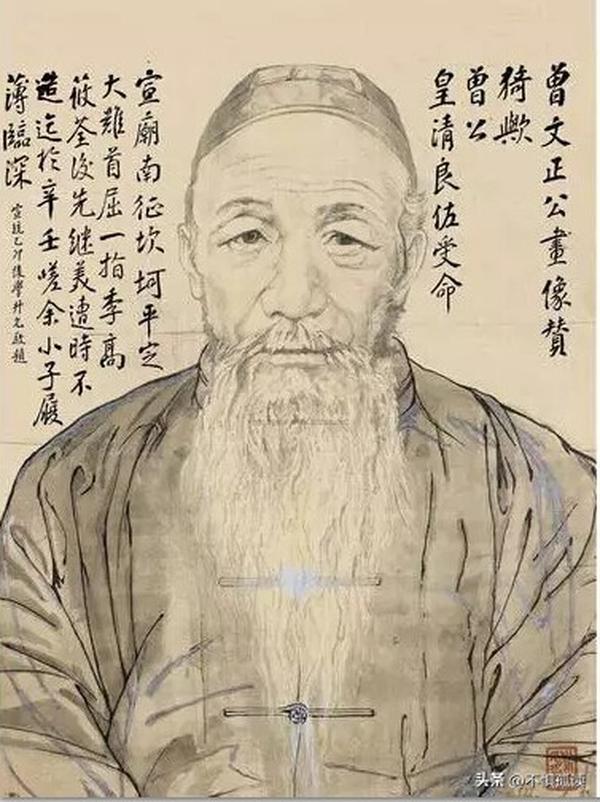 曾文正公畫像贊
猗歟
曾公
皇清良佐受命
宣廟南征坎坷平定
大難首屈一指季高
筱荃後先继美遭時不
造迄於辛壬嗟余小子履
薄臨深
宣統乙卯後學升允敬題
头条 @不惧孤读